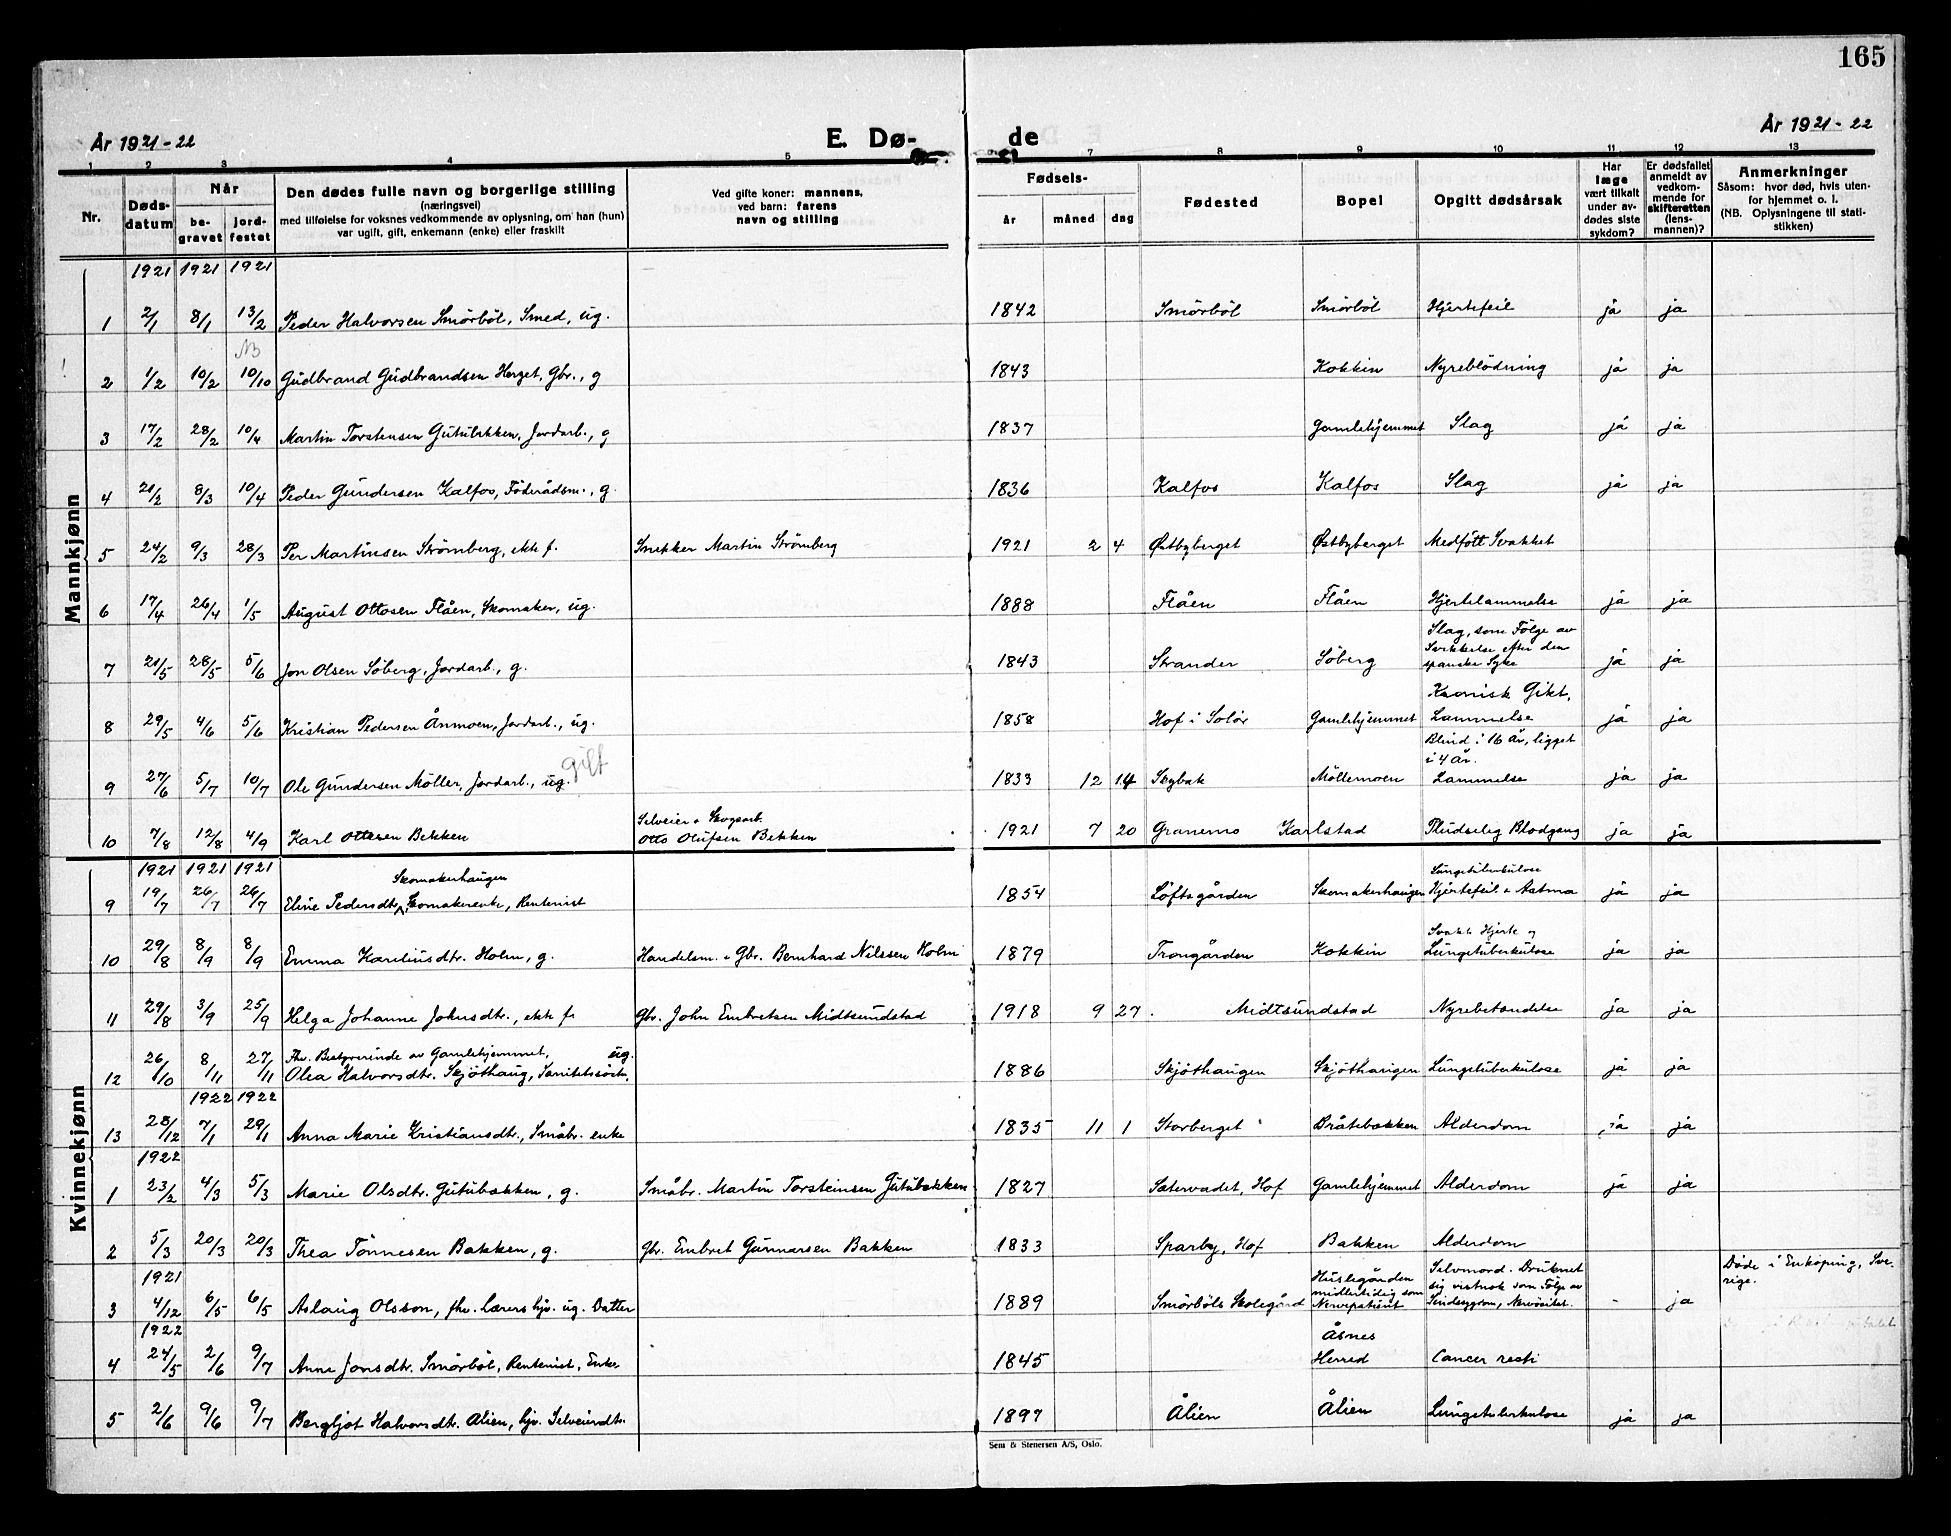 165
År 1921-22
E. Dø-
de
År 1921-22
1 2 3 4 5 7 8 9 10 11 12 13
Nr.
Døds-
datum
Når
be-
gravet
jord-
festet
Den dødes fulle navn og borgerlige stilling
(næringsvei)
med tilføielse for voksnes vedkommende av oplysning, om han (hun)
var ugift, gift, enkemann (enke) eller fraskilt
Ved gifte koner: mannens,
ved barn: farens
navn og stilling
Fødsels-
år måned dag
Fødested
Bopel
Opgitt dødsårsak
Har
læge
vært tilkalt
under av-
dødes siste
sykdom?
Er dødsfallet
anmeldt av
vedkom-
mende for
skifteretten
(lens-
mannen)?
Anmerkninger
Såsom: hvor død, hvis uten-
for hjemmet o. l.
(NB. Oplysningene til stati-
stikken)
Mannkjønn
1921 1921 1921
1 2/1 8/1 13/2 Peder Halvorsen Smörböl, Smed, ug. 1842 Smörböl Smörböl Hjertefeil ja ja
NB
2 1/2 10/2 10/10 Gudbrand Gudbrandsen Herget, Gbr., g 1843 Kokkin Nyreblödning ja ja
3 17/2 28/2 10/4 Martin Torstensen Gutubakken, Jordarb., g 1837 Gamlehjemmet Slag ja ja
4 21/2 8/3 10/4 Peder Gundersen Kalfos, Föderådsm., g. 1836 Kalfos Kalfos Slag ja ja
5 24/2 9/3 28/3 Per Martinsen Strömberg, ekte f. Snekker Martin Strömberg 1921 2 4 Østbyberget Østbyberget Medfött Svakhet
6 17/4 26/4 1/5 August Ottosen Flåen, Skomaker, ug. 1888 Flåen Flåen Hjertelammelse ja ja
Slag, som Fölge av
Svekkelse efter den
7 21/5 28/5 5/6 Jon Olsen Söberg, Jordarb., g. 1843 Strander Söberg spanske Syke ja ja
Kronisk Gikt,
8 29/5 4/6 5/6 Kristian Pedersen Ånmoen, Jordarb., ug. 1858 Hof i Solör Gamlehjemmet Lammelse ja ja
Blind i 16 år, ligget
i 4 år.
gift
9 27/6 5/7 10/7 Ole Gundersen Möller, Jordarb., ug. 1833 12 14 Skybak Möllemoen Lammelse ja ja
Selveier o Skogsarb.
10 7/8 12/8 4/9 Karl Ottesen Bekken Otto Olufsen Bekken 1921 7 20 Granemo Karlstad Pludselig Blodgang ja ja
Kvinnekjønn
1921 1921 1921
Skomakerhaugen
Lungetuberkulose
9 19/7 26/7 26/7 Eline Pedersdtr. Skomakerenke, Rentenist 1854 Löftsgården Skomakerhaugen Hjertefeil o Astma ja ja
Svakt Hjerte og
10 29/8 8/9 8/9 Emma Kareliusdtr. Holm, g. Handelsm. o Gbr. Bernhard Nilssen Holm 1879 Trongården Kokkin Lungetuberkulose ja ja
11 29/8 3/9 25/9 Helga Johanne Johnsdtr., ekte f. Gbr. John Embretsen Midtsundstad 1918 9 27 Midtsundstad Nyrebetændelse ja ja
Fhv. Bestyrerinde av Gamlehjemmet, ug.
12 26/10 8/11 27/11 Olea Halvorsdtr. Skjöthaug, Sanitetssöst. 1886 Skjöthaugen Skjöthaugen Lungetuberkulose ja ja
1922 1922
13 28/12 7/1 29/1 Anna Marie Kristiansdtr., Småbr. enke 1835 11 1 Storberget Bråtebakken Alderdom ja ja
1922
1 23/2 4/3 5/3 Marie Olsdtr. Gutubakken, g. Småbr. Martin Torsteinsen Gutubakken 1827 Sætervadet, Hof Gamlehjemmet Alderdom ja ja
2 5/3 20/3 20/3 Thea Tönnesen Bakken, g. Gbr. Embret Gunnarsen Bakken 1833 Sparby, Hof Bakken Alderdom
1921
Huslegården
midlertidig som
Selvmord. Druknet
sig vistnok som Fölge av
Döde i Enköping, Sve-
rige.
3 4/12 6/5 6/5 Aslaug Olsson, fhv. Lærers hjv. ug. Datter 1889 Smörböls Skolegård Nervepatient Sindssygdom, Nervösitet. - ja
1922
Åsnes
4 24/5 2/6 9/7 Anne Jonsdtr. Smörböl, Rentenist, Enke 1845 Herred Cancer recti
5 2/6 9/6 9/7 Bergljot Halvorsdtr. Ålien, hjv. Selveierdtr. 1897 Ålien Ålien Lungetuberkulose ja ja
Sem & Stenersen A/S, Oslo.